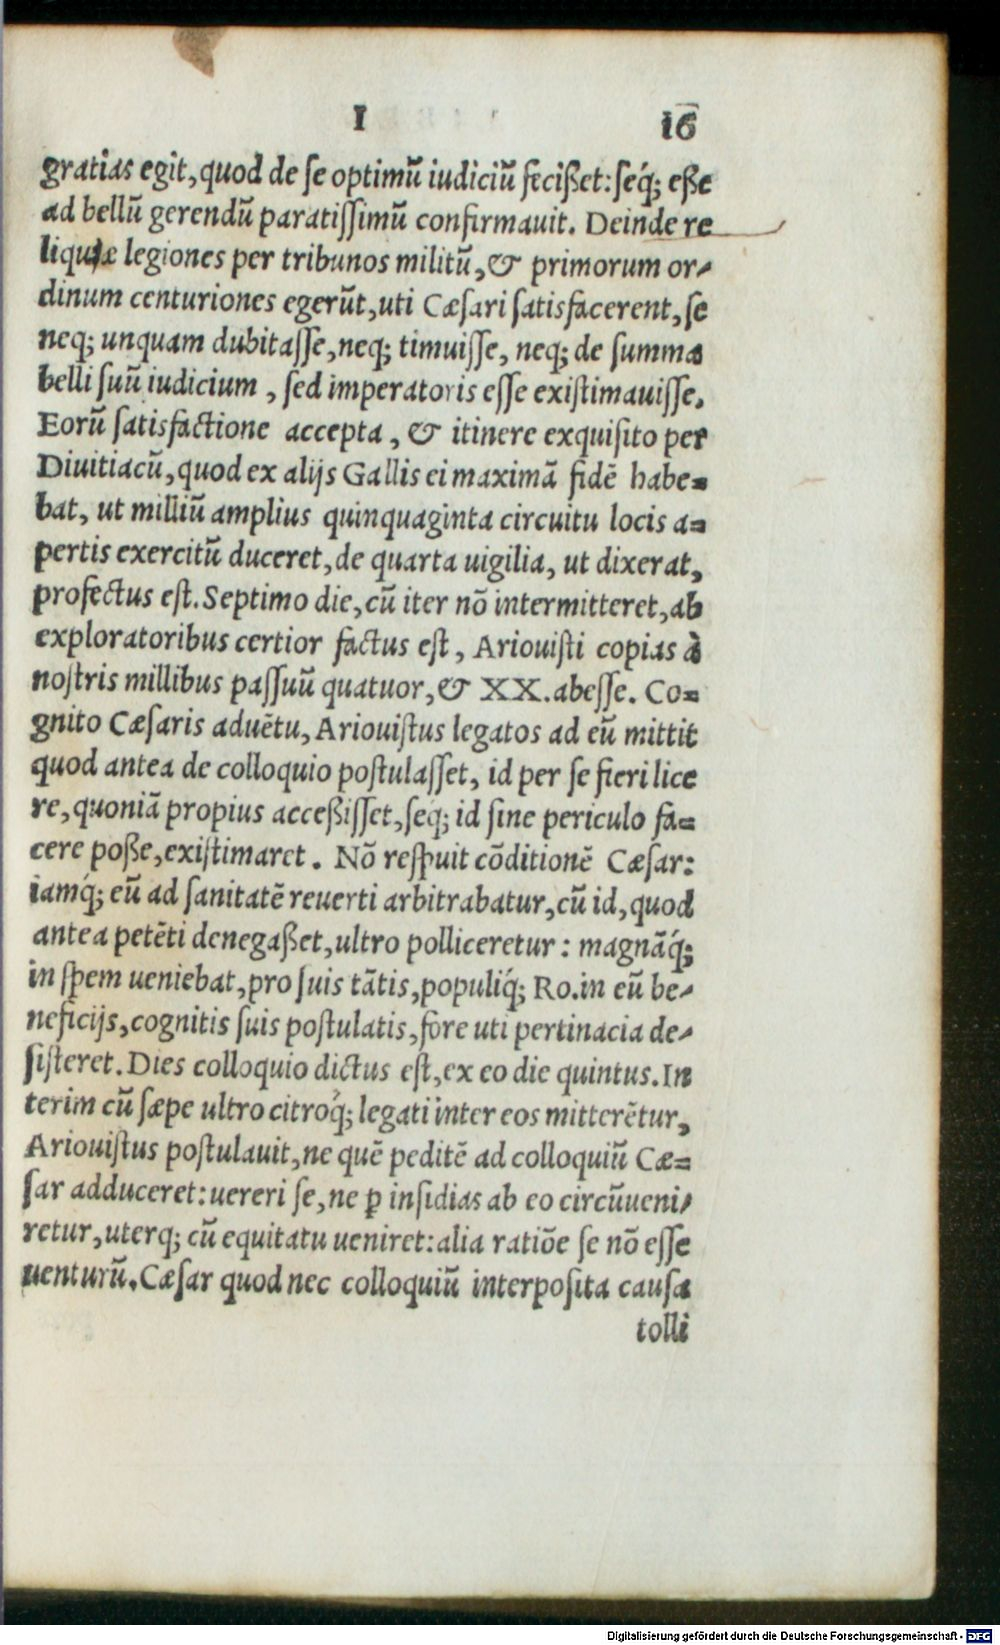 I 16
gratias egit, quod de se optimũ iudiciũ fecißet: seq́; eße
ad bellũ gerendũ paratissimũ confirmauit. Deinde re
liquæ legiones per tribunos militũ, & primorum or-
dinum centuriones egerũt, uti Cæsari satisfacerent, se
neq; unquam dubitasse, neq; timuisse, neq; de summa
belli suũ iudicium, sed imperatoris esse existimauisse.
Eorũ satisfactione accepta, & itinere exquisito per
Diuitiacũ, quod ex alijs Gallis ei maximã fidẽ habe=
bat, ut milliũ amplius quinquaginta circuitu locis a=
pertis exercitũ duceret, de quarta uigilia, ut dixerat,
profectus est. Septimo die, cũ iter nõ intermitteret, ab
exploratoribus certior factus est, Ariouisti copias à
nostris millibus passuũ quatuor, & XX. abesse. Co=
gnito Cæsaris aduẽtu, Ariouistus legatos ad eũ mittit
quod antea de colloquio postulasset, id per se fieri lice
re, quoniã propius acceßisset, seq́; id sine periculo fa=
cere poße, existimaret. Nõ respuit cõditionẽ Cæsar:
iamq́; eũ ad sanitatẽ reuerti arbitrabatur, cũ id, quod
antea petẽti denegaßet, ultro polliceretur: magnãq́;
in spem ueniebat, pro suis tãtis, populiq́; Ro. in eũ be-
neficijs, cognitis suis postulatis, fore uti pertinacia de-
sisteret. Dies colloquio dictus est, ex eo die quintus. In
terim cũ sæpe ultro citroq́; legati inter eos mitterẽtur,
Ariouistus postulauit, ne quẽ peditẽ ad colloquiũ Cæ=
sar adduceret: uereri se, ne ꝑ insidias ab eo circũueni-
retur, uterq; cũ equitatu ueniret: alia ratiõe se nõ esse
uenturũ. Cæsar quod nec colloquiũ interposita causa
tolli
Digitalisierung gefördert durch die Deutsche Forschungsgemeinschaft - DFG